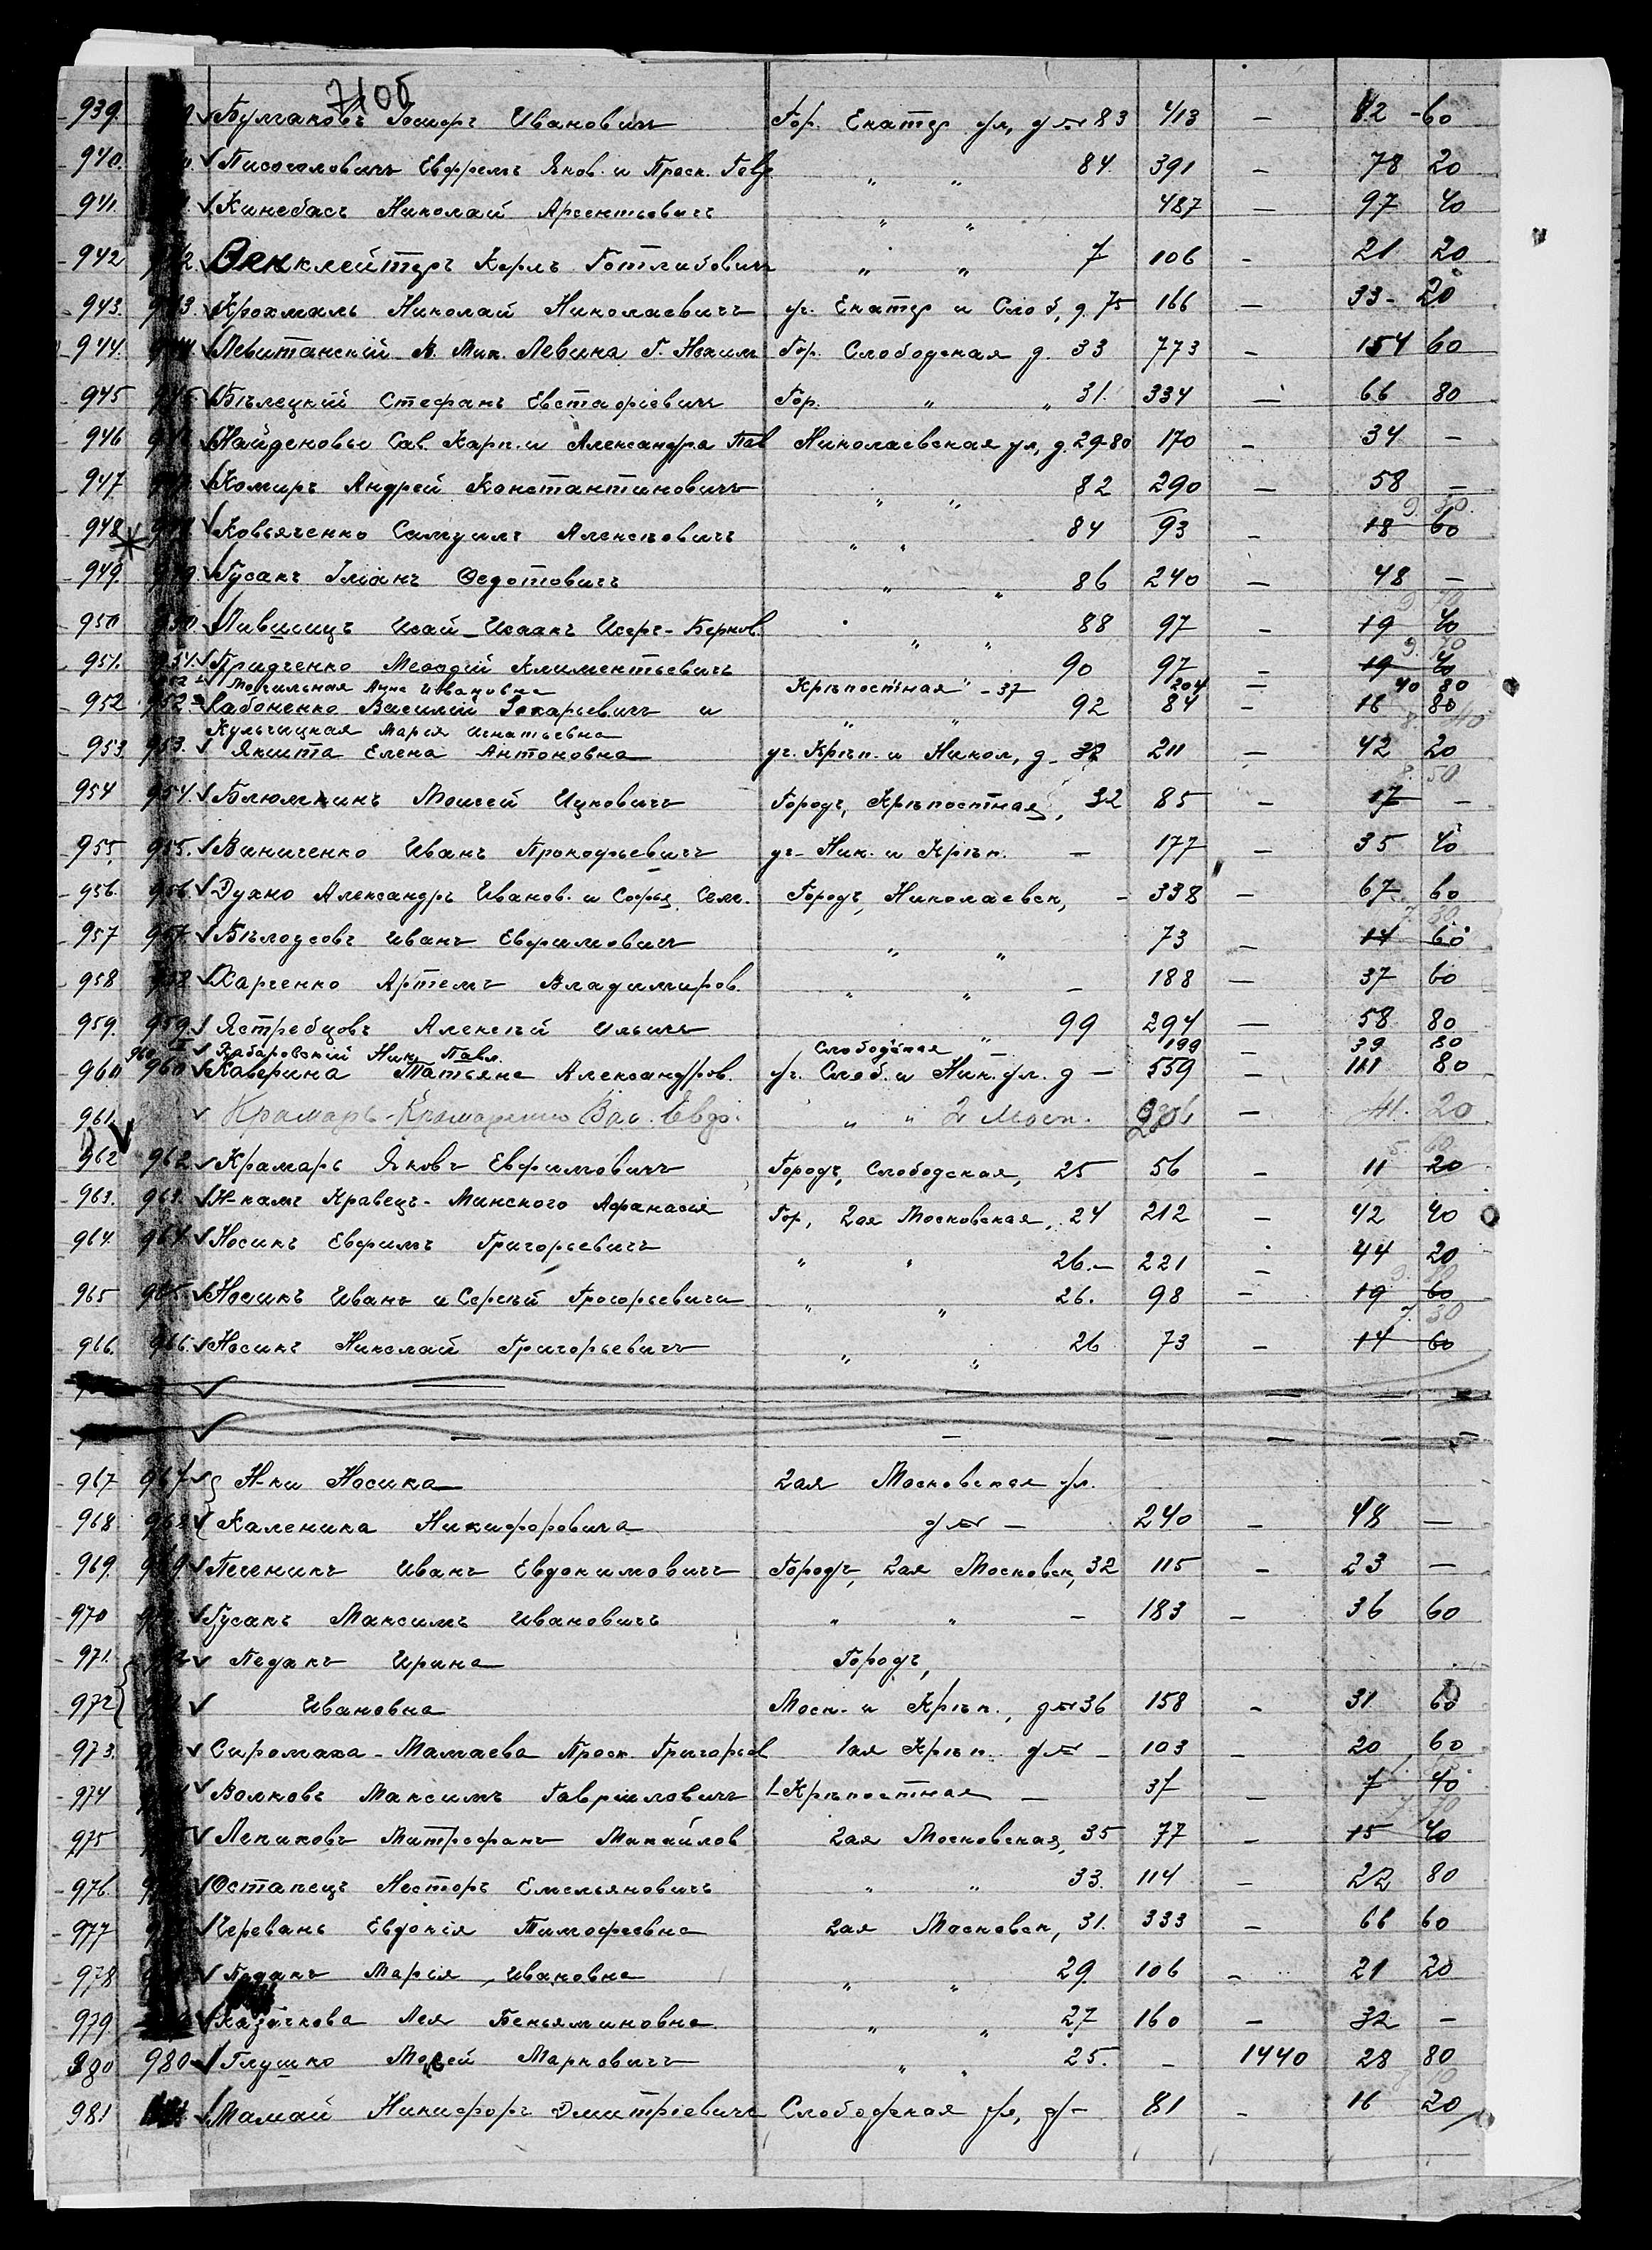 7100
939. Булгаковъ Іосифъ Ивановичъ Гор. Екатер ул, д № 83 413 — 82 - 60
940. Писоиловичъ Ефремъ Яков. и Праск. „ „ 84 391 — 78 20
941. Кинебасъ Николай Арсентьевичъ „ „ 487 — 97 40
942 Векклейтеръ Карлъ Готлибовичъ „ „ 7 106 - 21 20
943. 943. Крохмаль Николай Николаевичъ уг. Екатер и Слоб, д. 75 166 — 33 - 20
944. Левитанскій Л. Мих. Левина Г. Гор. Слободская д. 33 773 - 154 60
945 945 Бѣлецкій Стефанъ Евстафіевичъ Гор. „ „ 31. 334 — 66 80
946 Найденовы Сав. Карп. и Александра Пав Николаевская ул, д. 29-80 170 - 34 —
947. Комиръ Андрей Константиновичъ „ „ 82 290 — 58 —
9. 30.
948 Ковьяченко Самуилъ Алексѣевичъ „ „ 84 93 - 18 60
949. 949 Гусакъ Ѳедотовичъ „ „ 86 240 — 48 —
9. 70
950 950. Лившицъ Исай-Исаакъ Исеръ-Берков. „ „ 88 97 - 19 40
9. 70
951. 951. Гридченко Меѳодій Климентьевичъ 90 97 - 19 40
Могильная Анна Ивановна Крѣпостная - 37 204 — 40 80
952 952 Лабоненко Василій Захарьевичъ и „ „ 92 84 - 16 80
Кульчицкая Марья Игнатьевна 8. 40
953 953. Якшта Елена Антоновна уг. Крѣп. и Никол, д - 32 211 — 42 20
8. 50
954 954. Блюмкинъ Моисей Ицковичъ Городъ, Крѣпостная, 32 85 - 17 —
955. 955. Виниченко Иванъ Прокофьевичъ уг- Ник. и Крѣп. — 177 - 35 40
956. 956. Духно Александръ Иванов. и Софья Сем. Городъ, Николаевск, - 338 — 67 60
7. 30
957 957. Бѣлоусовъ Иванъ Ефимовичъ „ „ 73 - 14 60
958 958 Харченко Артемъ Владимиров. „ „ - 188 — 37 60
959. 959. Ястребцовъ Алексѣй Ильичъ „ 99 294 — 58 80
Хабаровскій Ник. Павл. Слободская 199 - 39 80
960 960 Каверина Татьяна Александров. уг. Слоб. и Ник. ул. д - 559 — 111 80
961. Крамарь-Крамаренко Вас. Евдо. „ „ 2 Моск. 206 — 41. 20
962 962 Крамарь Яковъ Ефимовичъ Городъ, Слободская, 25 56 - 11 20
963. 963. Н-камъ Кравецъ-Минского Афанасія Гор, 2ая Московская, 24 212 — 42 40
964. 964. Носикъ Ефимъ Григорьевичъ „ „ 26. — 221 - 44 20
965 965. Носикъ Иванъ и Сергѣй Григорьевичи „ „ 26. 98 — 19 60
7. 30
966. 966. Носикъ Николай Григорьевичъ „ „ 26 73 - 14 60
— — — — — —
— — — — — —
967 967 Н-ки Носика 2ая Московская ул.
968 968 Каленика Никифоровича д № — 240 - 48 —
969. 969 Печеникъ Иванъ Евдокимовичъ Городъ, 2ая Московск, 32 115 - 23 —
970 Гусакъ Максимъ Ивановичъ „ „ - 183 - 36 60
971. Педакъ Ирина Городъ,
972 Ивановна Моск. и Крѣп., д № 36 158 - 31 60
973. Сиромаха-Мамаева Праск. Григорьев 1ая Крѣп. д № - 103 - 20 60
974 Волковъ Максимъ Гавріиловичъ 1-Крѣпостная — 37 - 7 40
975 Лениковъ Митрофанъ Михайлов 2ая Московская, 35 77 - 15 40
976. Остапецъ Несторъ Емельяновичъ „ „ 33. 114 - 22 80
977 Черевань Евдокія Тимофеевна 2ая Московск, 31. 333 - 66 60
978 Педакъ Марія Ивановна „ „ 29 106 - 21 20
979 Казачкова Лея Беньяминовна „ „ 27 160 - 32 —
980 980 Глушко Мойсей Марковичъ „ „ 25. - 1440 28 80
8 10
981 Мамай Никифоръ Дмитріевичъ Слободская ул, д - 81 - 16 20